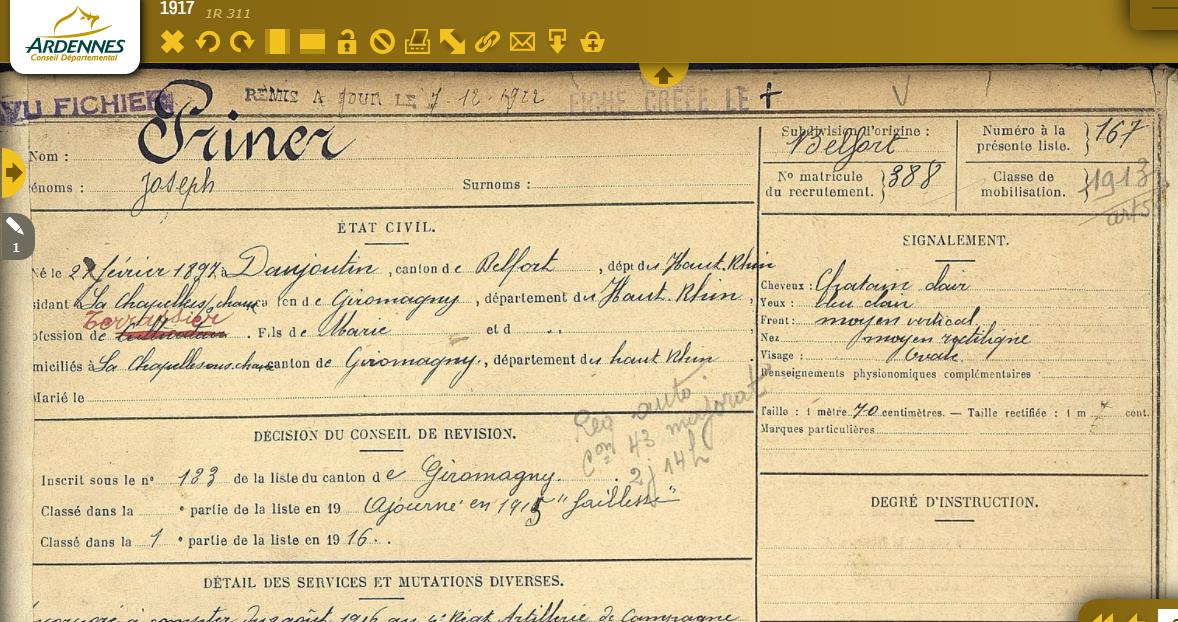 1917 1R 311
ARDENNES
Conseil Départemental
VU FICHIER REMIS A JOUR LE 7-12-1922 FICHE CREEE LE +
Nom : Priner
énoms : Joseph Surnoms :
Subdivision d'origine : Belfort
Numéro à la présente liste. 167
No matricule du recrutement. 388
Classe de mobilisation. 1913
ÉTAT CIVIL.
Né le 27 février 1897, à Danjoutin, canton de Belfort, dépt du Haut. Rhin
sidant La Chapelle s/ chaux ton de Giromagny, département du Haut. Rhin,
Terrassier
ofession de Cultivateur. Fils de Marie et d . . ,
miciliés à La Chapelle sous chaux canton de Giromagny, département du haut Rhin.
Marié le
Req auto
Con 43 majorat
2j 14h
DÉCISION DU CONSEIL DE REVISION.
Inscrit sous le no 183 de la liste du canton de Giromagny.
Classé dans la e partie de la liste en 19 Ajourné en 1915 "faiblesse"
Classé dans la 1 e partie de la liste en 1916.
DÉTAIL DES SERVICES ET MUTATIONS DIVERSES.
à compter du août 1916 au 4e Régt Artillerie de Campagne
SIGNALEMENT.
Cheveux : Chatain clair
Yeux : bleu clair
Front : moyen vertical
Nez moyen rectiligne
Visage : Ovale.
Renseignements physionomiques complémentaires
Taille : 1 mètre 70 centimètres. — Taille rectifiée : 1 m cent.
Marques particulières
DEGRÉ D'INSTRUCTION.
1